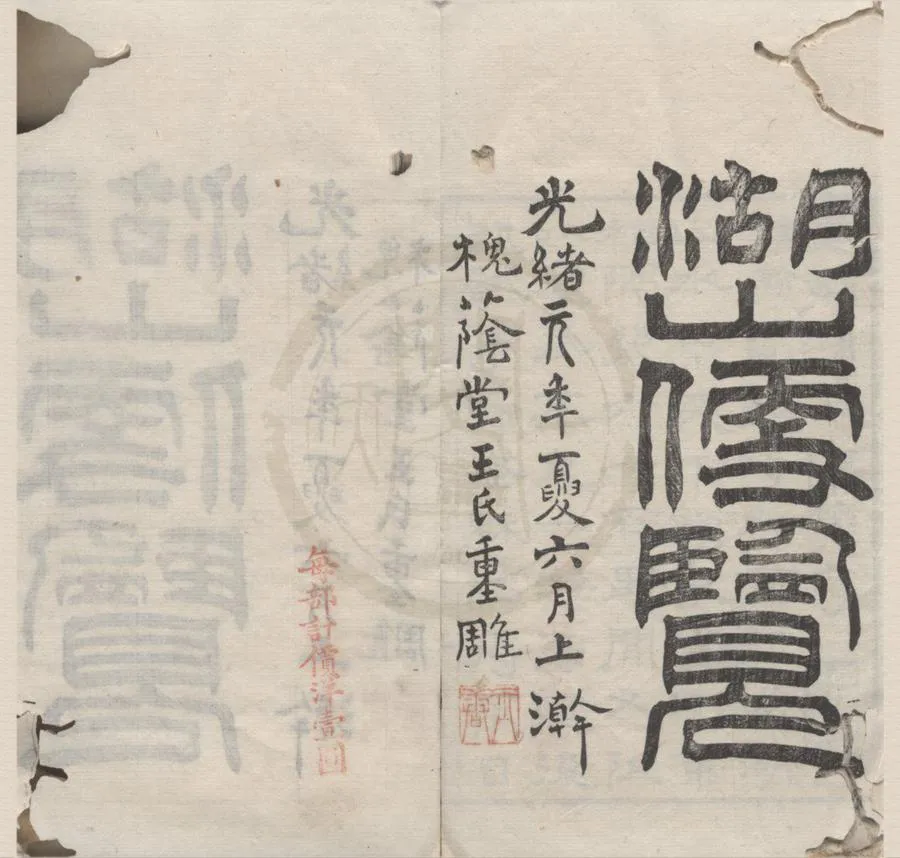 湖山便覽
光緒元年夏六月上澣
槐蔭堂王氏重雕
每部計價洋壹圓